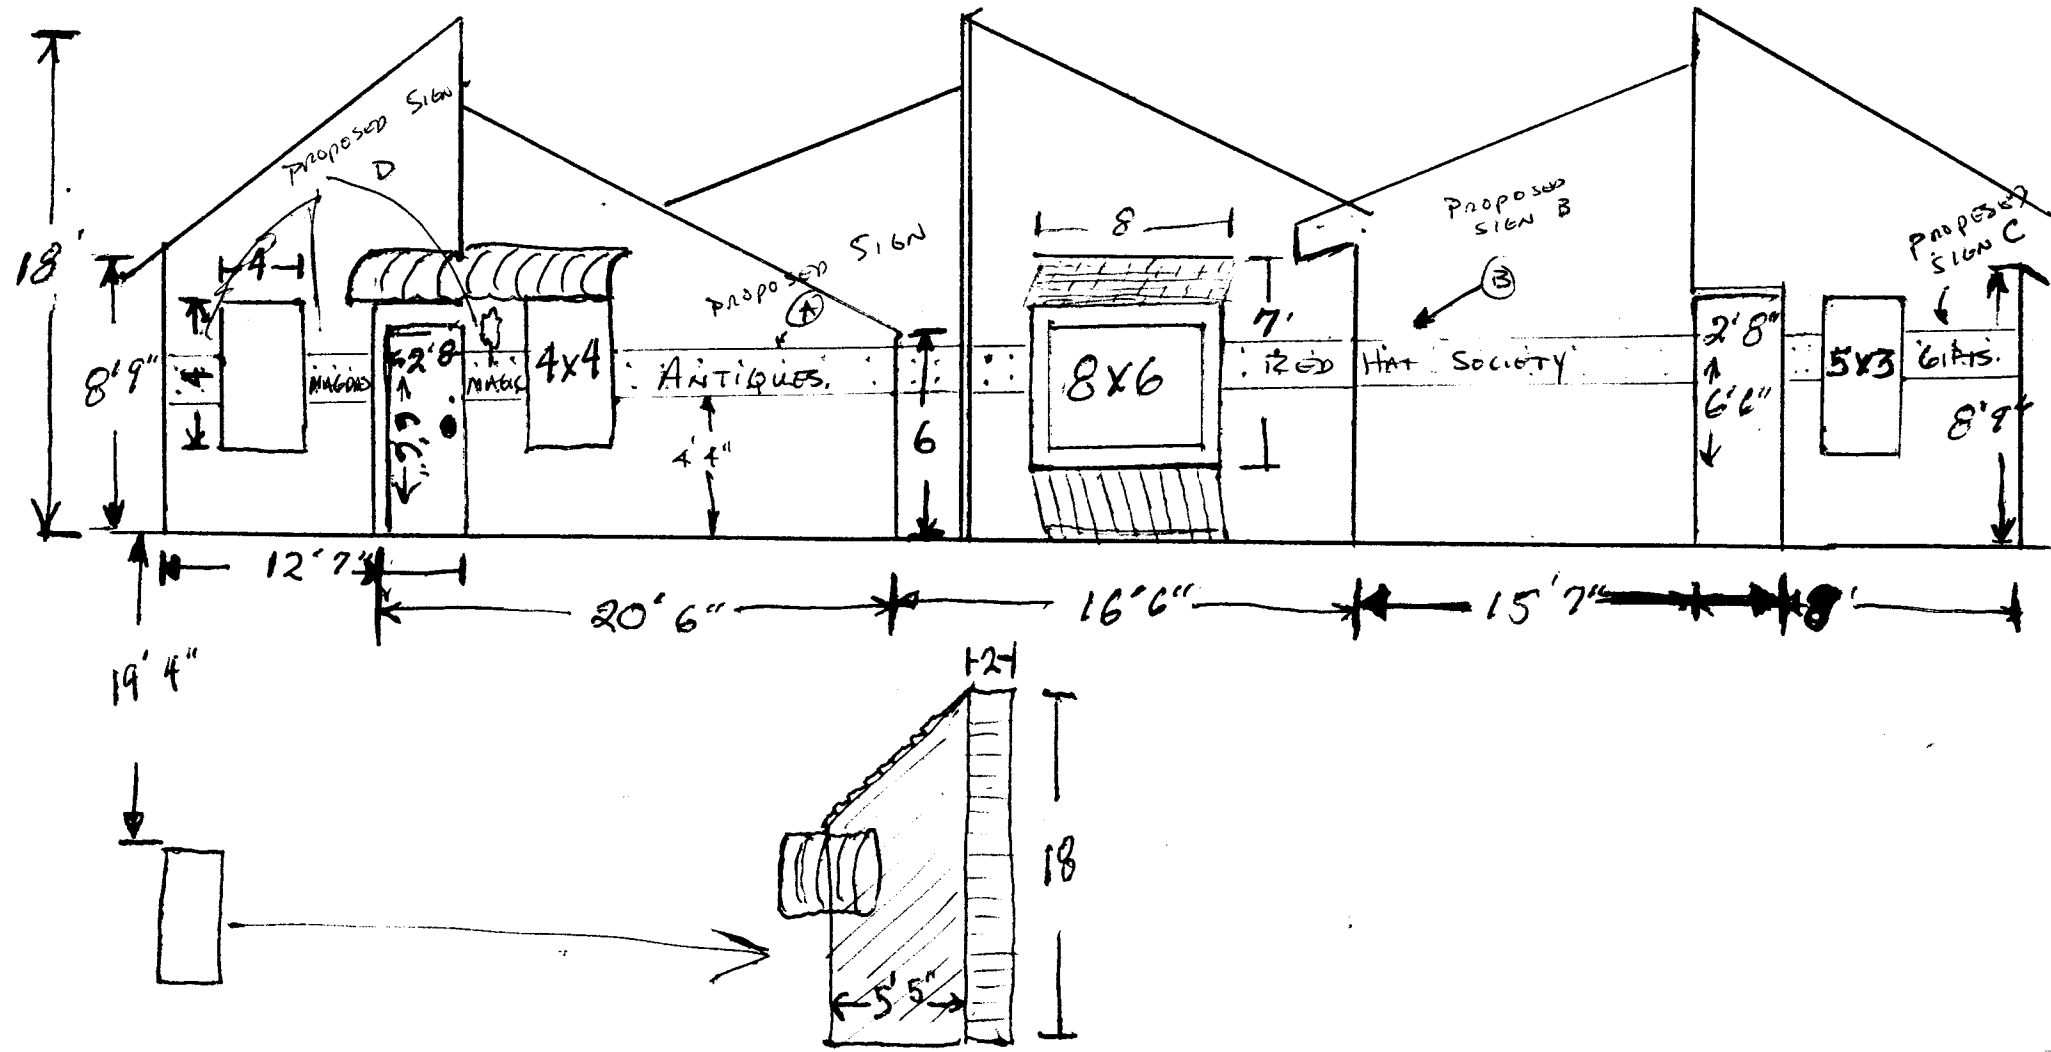 18'
8'9"
PROPOSED SIGN
D
4
4
2'8
6'6"
MAGIC
4x4
PROPOSED SIGN
A
ANTIQUES.
4'4"
6
8
7'
8x6
PROPOSED
SIGN B
B
RED HAT SOCIETY
2'8"
6'6"
PROPOSED
SIGN C
5x3
GIFTS.
8'9"
12'7"
20'6"
16'6"
15'7"
8'
19'4"
2
18
5'5"